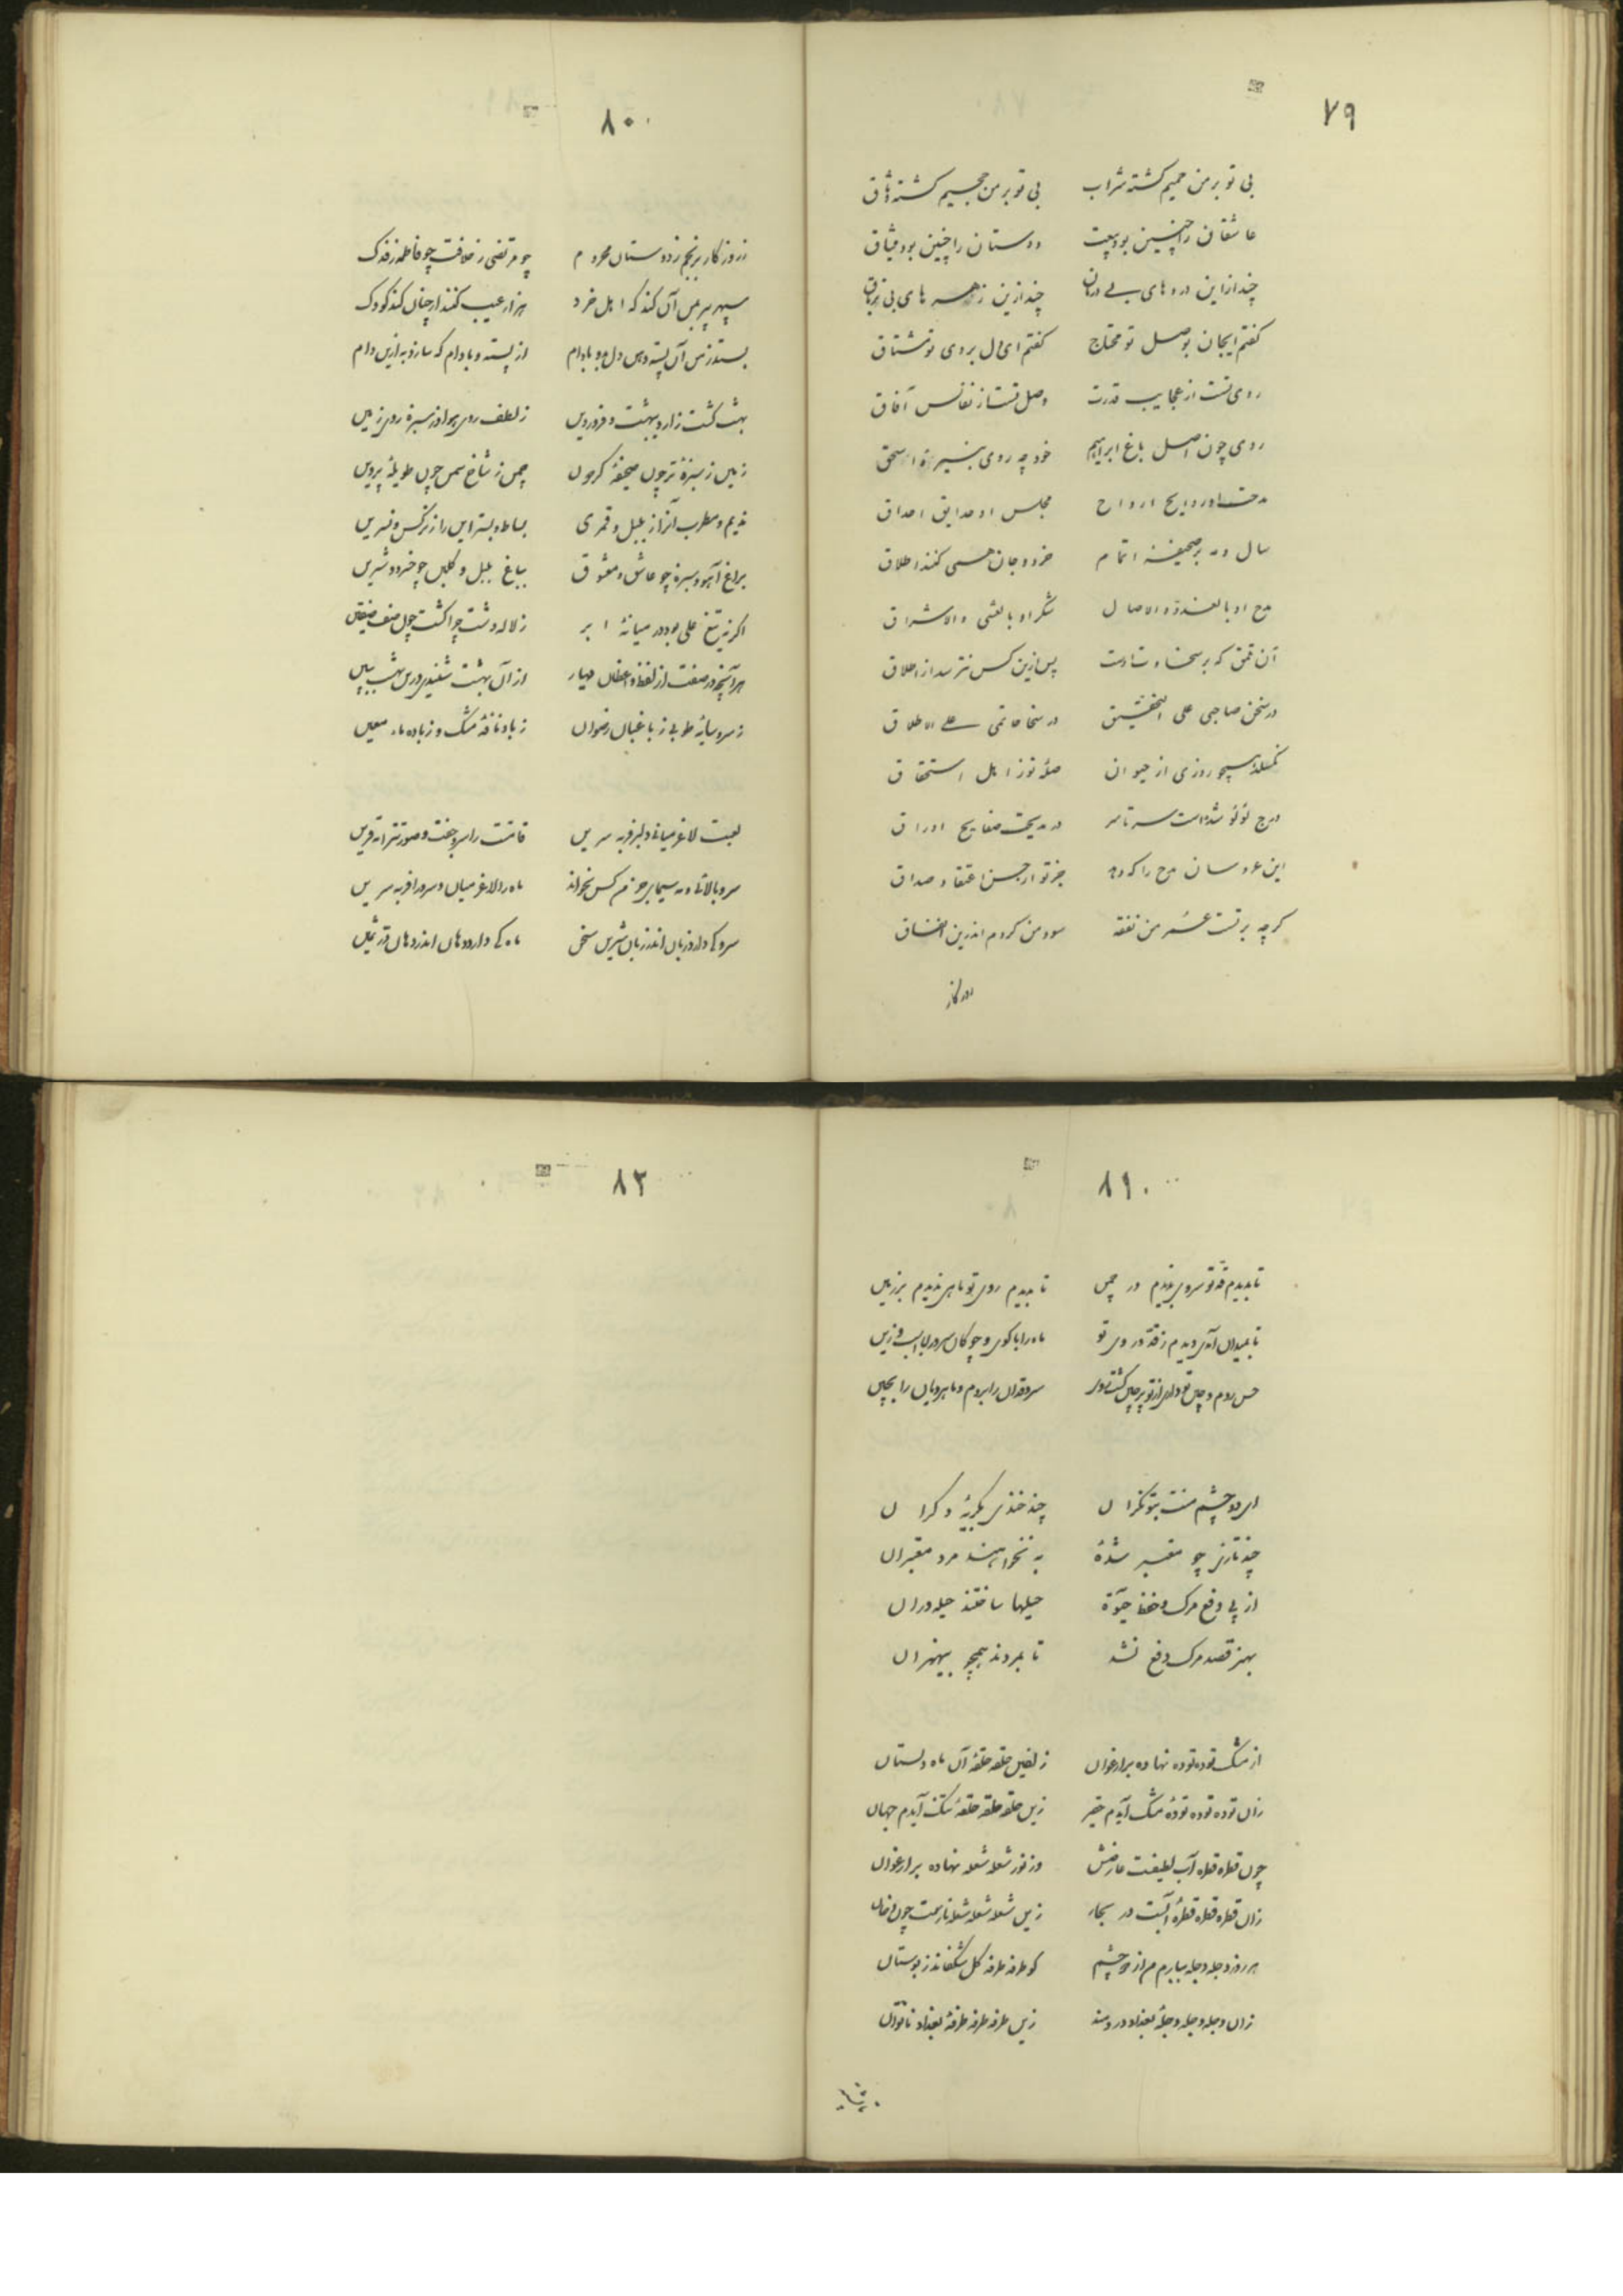 ۷۹
بی تو بر من حمیم گشته شراب بی تو بر من جحیم گشته وثاق
عاشقان را چنین بود بیعت دوستان را چنین بود میثاق
چند ازاین دردهای بی درمان چند ازین زهرهای بی تریاق
گفتم ایجان بوصل تو محتاج گفتم ای دل بروی تو مشتاق
روی تست از عجایب قدرت وصل تست از نفائس آفاق
روی چون اصل باغ ابراهیم خود چه روی نبیره اسحق
مدحت او روایح ارواح مجلس او حدایق احداق
سال و مه بر صحیفه اتمام خرد و جان همی کنند اطلاق
مدح او بالغدو والاصال شکر او بالعشی والاشراق
آن تمق که بر سخا و تست پس ازین کس نترسد از املاق
در سخن صاحبی علی التحقیق در سخا حاتمی علی الاطلاق
همچو روزی از حیوان صله تو ز اهل استحقاق
درج لؤلؤ شده است سرتاسر در مدیحت صفایح اوراق
این عروسان مدح را که دهد جز تو از حسن اعتقاد صداق
گرچه بر تست عشر من نفقه سود من کردم اندرین انفاق
روزگار
۸۰
ز روزگار برنجم ز دوستان محروم چو مرتضی ز خلافت چو فاطمه ز فدک
سپهر پیر بمن آن کند که اهل خرد هزار عیب کنند ار چنان کند کودک
بستد ز من آن پسته دهن دل بدو بادام از پسته و بادام که سازد به ازین دام
بهشت گشت ز اردیبهشت و فروردین ز لطف روی هوا و ز سبزه روی زمین
زمین ز سبزه تر چون صحیفه گردون چمن ز شاخ سمن چون طویله پروین
ندیم و مطرب آنرا ز بلبل و قمری بساط و بستر این را ز نرگس و نسرین
براغ آهو و سبزه چو عاشق و معشوق بباغ بلبل و گلبن چو خسرو و شیرین
اگر نه تیغ علی بود در میانه ابر ز لاله دشت چرا گشت چون صف صفین
هر آنچه در صفت از لفظ واعظان هر بار از آن بهشت شنیدی درین بهشت ببین
ز سرو سایه طوبی ز باغبان رضوان ز باد نافه مشک و ز باده ماء معین
لعبت لاغر میانی دلبر فربه سرین قامتت را سرو جفت و صورتت را مه قرین
سرو بالائی و مه سیما و جز من کس نخواند ماه را لاغر میان و سرو را فربه سرین
سرو کی دارد زبان اندر زبان شیرین سخن ماه کی دارد دهان اندر دهان در ثمین
۸۱
تا بدیدم قد تو سروی ندیدم در چمن تا بدیدم روی تو ماهی ندیدم بر زمین
تا بمیدان آمدی دیدم ز قد و روی تو ماه را با گوی و چوگان سرو را با اسب و زین
سروقدان را بروم و ماهرویان را بچین
ای دو چشم منت بتو نگران چند خندی بگریه دگران
چند نازی چو معتبر شده به نخواهند مرد معتبران
از پی دفع مرگ و حفظ حیوة حیلها ساختند حیله وران
بهنر قصد مرگ دفع نشد تا بمردند همچو بیهنران
از مشک توده توده نهاده بر ارغوان زلفین حلقه حلقه آن ماه دلستان
زان توده توده توده مشک آیدم حقیر زین حلقه حلقه حلقه تنگ آیدم جهان
چون قطره قطره آب لطیفت عارضش وز نور شعله شعله نهاده بر ارغوان
زان قطره قطره قطره آبست در بحار زین شعله شعله شعله نارست چون دخان
هر روز دجله دجله ببارم من از دو چشم کو طرفه طرفه گل شکفاند ز بوستان
زان دجله دجله دجله بغداد دردمند زین طرفه طرفه طرفه بغداد ناتوان
۸۲